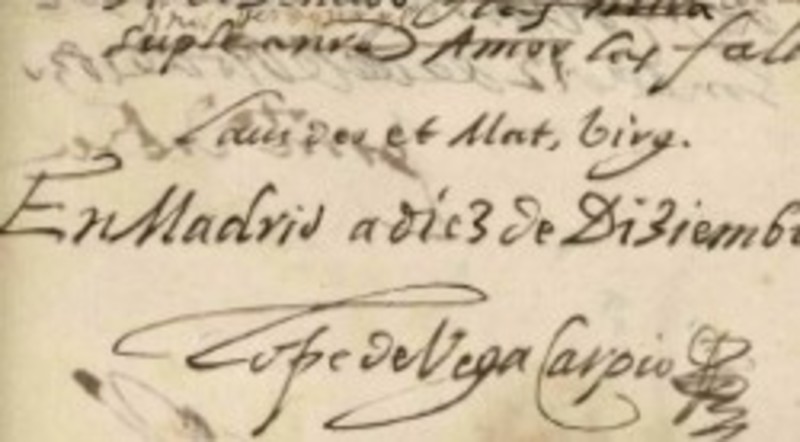 suple
Amor las fal
Laus deo et Mat, birg.
En Madrid a diez de Diziemb
Lope de Vega Carpio